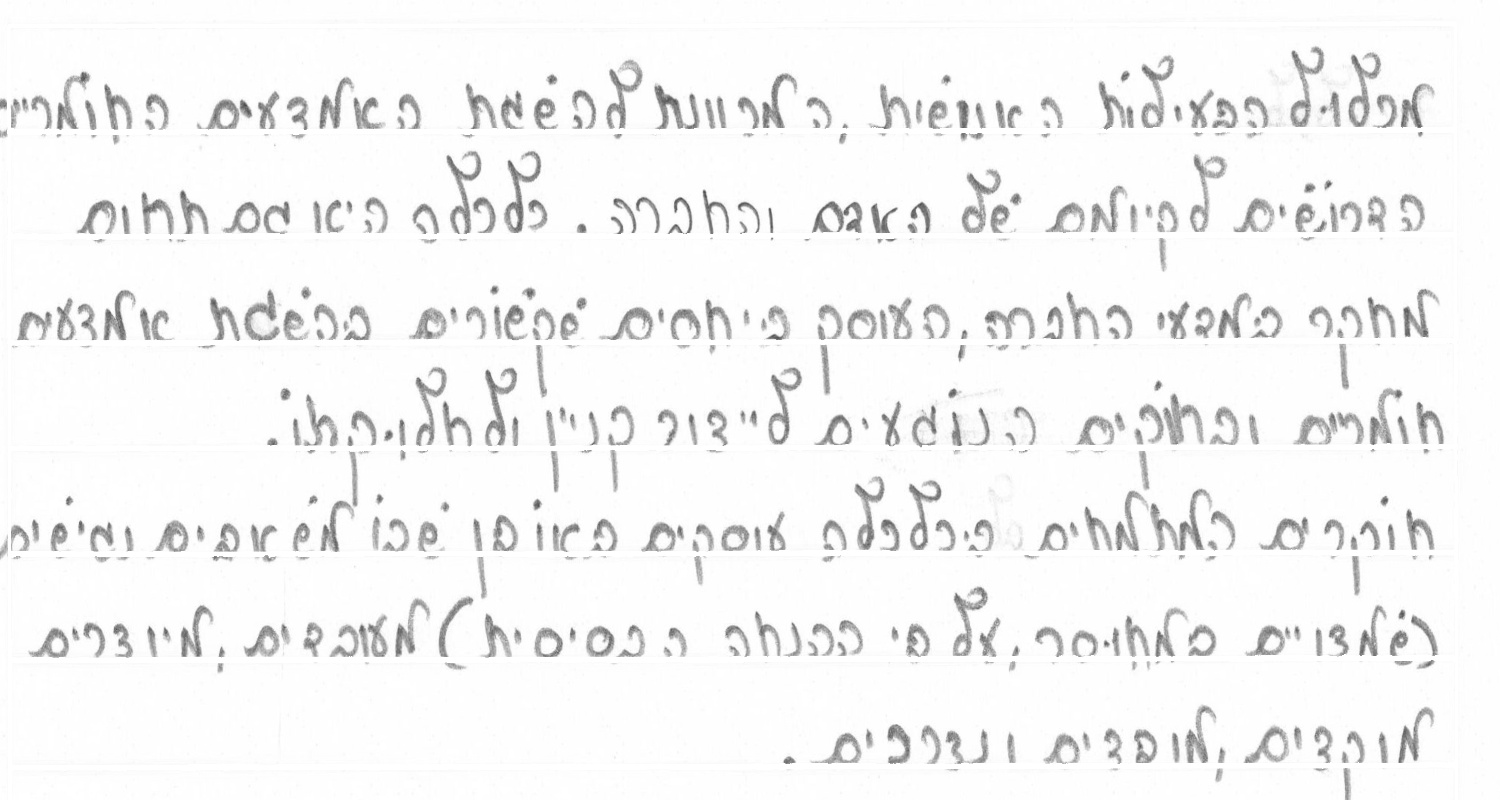 מכלול הפעילות האנושית, המכוונת להשגת האמצעים החומריים
הדרושים לקיומם של האדם והחברה. כלכלה היא גם תחום
מחקר במדעי החברה, העוסק ביחסים שקשורים בהשגת אמצעים
חומריים ובחוקים הנוגעים לייצור קניין ולחלוקתו.
חוקרים המתמחים בכלכלה עוסקים באופן שבו משאבים וגישים
(שמצויים במחוסר, על פי ההנחה הבסיסית) מעובדים, מיוצרים
מוקצים, מופצים ונצרכים.